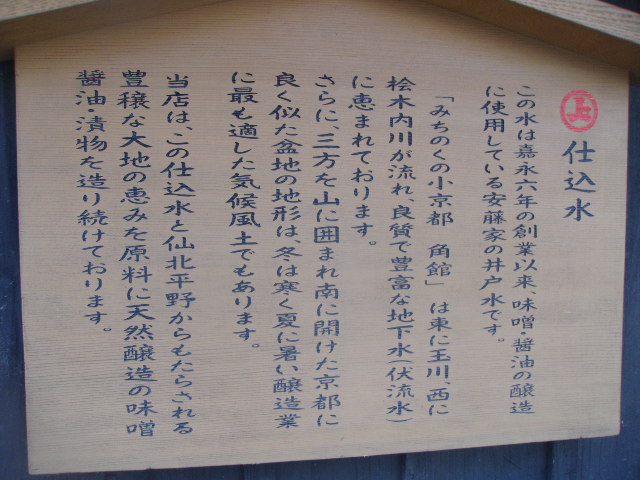 上 仕込水
この水は嘉永六年の創業以来、味噌・醤油の醸造
に使用している安藤家の井戸水です。
「みちのくの小京都 角館」は東に玉川、西に
桧木内川が流れ、良質で豊富な地下水(伏流水)
に恵まれております。
さらに、三方を山に囲まれ南に開けた京都に
良く似た盆地の地形は、冬は寒く夏に暑い醸造業
に最も適した気候風土でもあります。
当店は、この仕込水と仙北平野からもたらされる
豊穣な大地の恵みを原料に天然醸造の味噌
醤油・漬物を造り続けております。